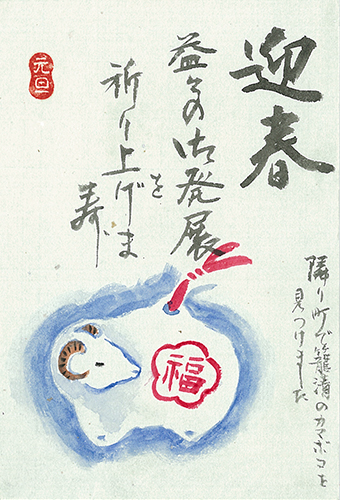 迎春
益々の御発展
を
祈り上げま
寿
隣り町で籠清のカマボコを
見つけました
元旦
福